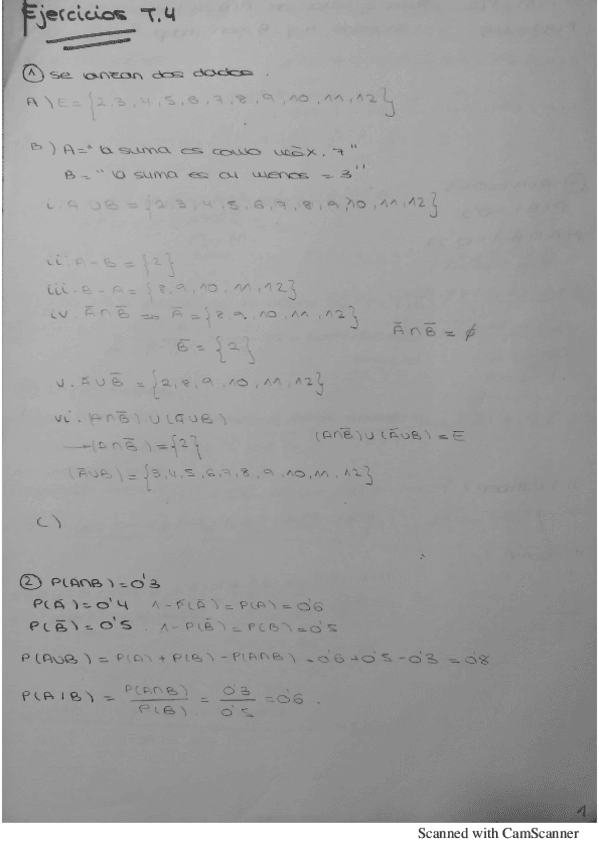 Ejercicios T.4
① se lanzan dos dados.
A) E = {2, 3, 4, 5, 6, 7, 8, 9, 10, 11, 12}
B) A = "la suma es como máx. 7"
B = "la suma es al menos = 3"
i. A ∪ B = {2, 3, 4, 5, 6, 7, 8, 9, 10, 11, 12}
ii. A - B = {2}
iii. B - A = {8, 9, 10, 11, 12}
iv. Ā ∩ B̄ => Ā = {8, 9, 10, 11, 12}
B̄ = {2}
Ā ∩ B̄ = ∅
v. Ā ∪ B̄ = {2, 8, 9, 10, 11, 12}
vi. (A ∩ B̄) ∪ (Ā ∪ B)
(A ∩ B̄) = {2}
(A ∩ B̄) ∪ (Ā ∪ B) = E
(Ā ∪ B) = {3, 4, 5, 6, 7, 8, 9, 10, 11, 12}
C)
② P(A ∩ B) = 0'3
P(Ā) = 0'4 1 - P(Ā) = P(A) = 0'6
P(B̄) = 0'5. 1 - P(B̄) = P(B) = 0'5
P(A ∪ B) = P(A) + P(B) - P(A ∩ B) = 0'6 + 0'5 - 0'3 = 0'8
P(A / B) = P(A ∩ B) / P(B) = 0'3 / 0'5 = 0'6.
1
Scanned with CamScanner